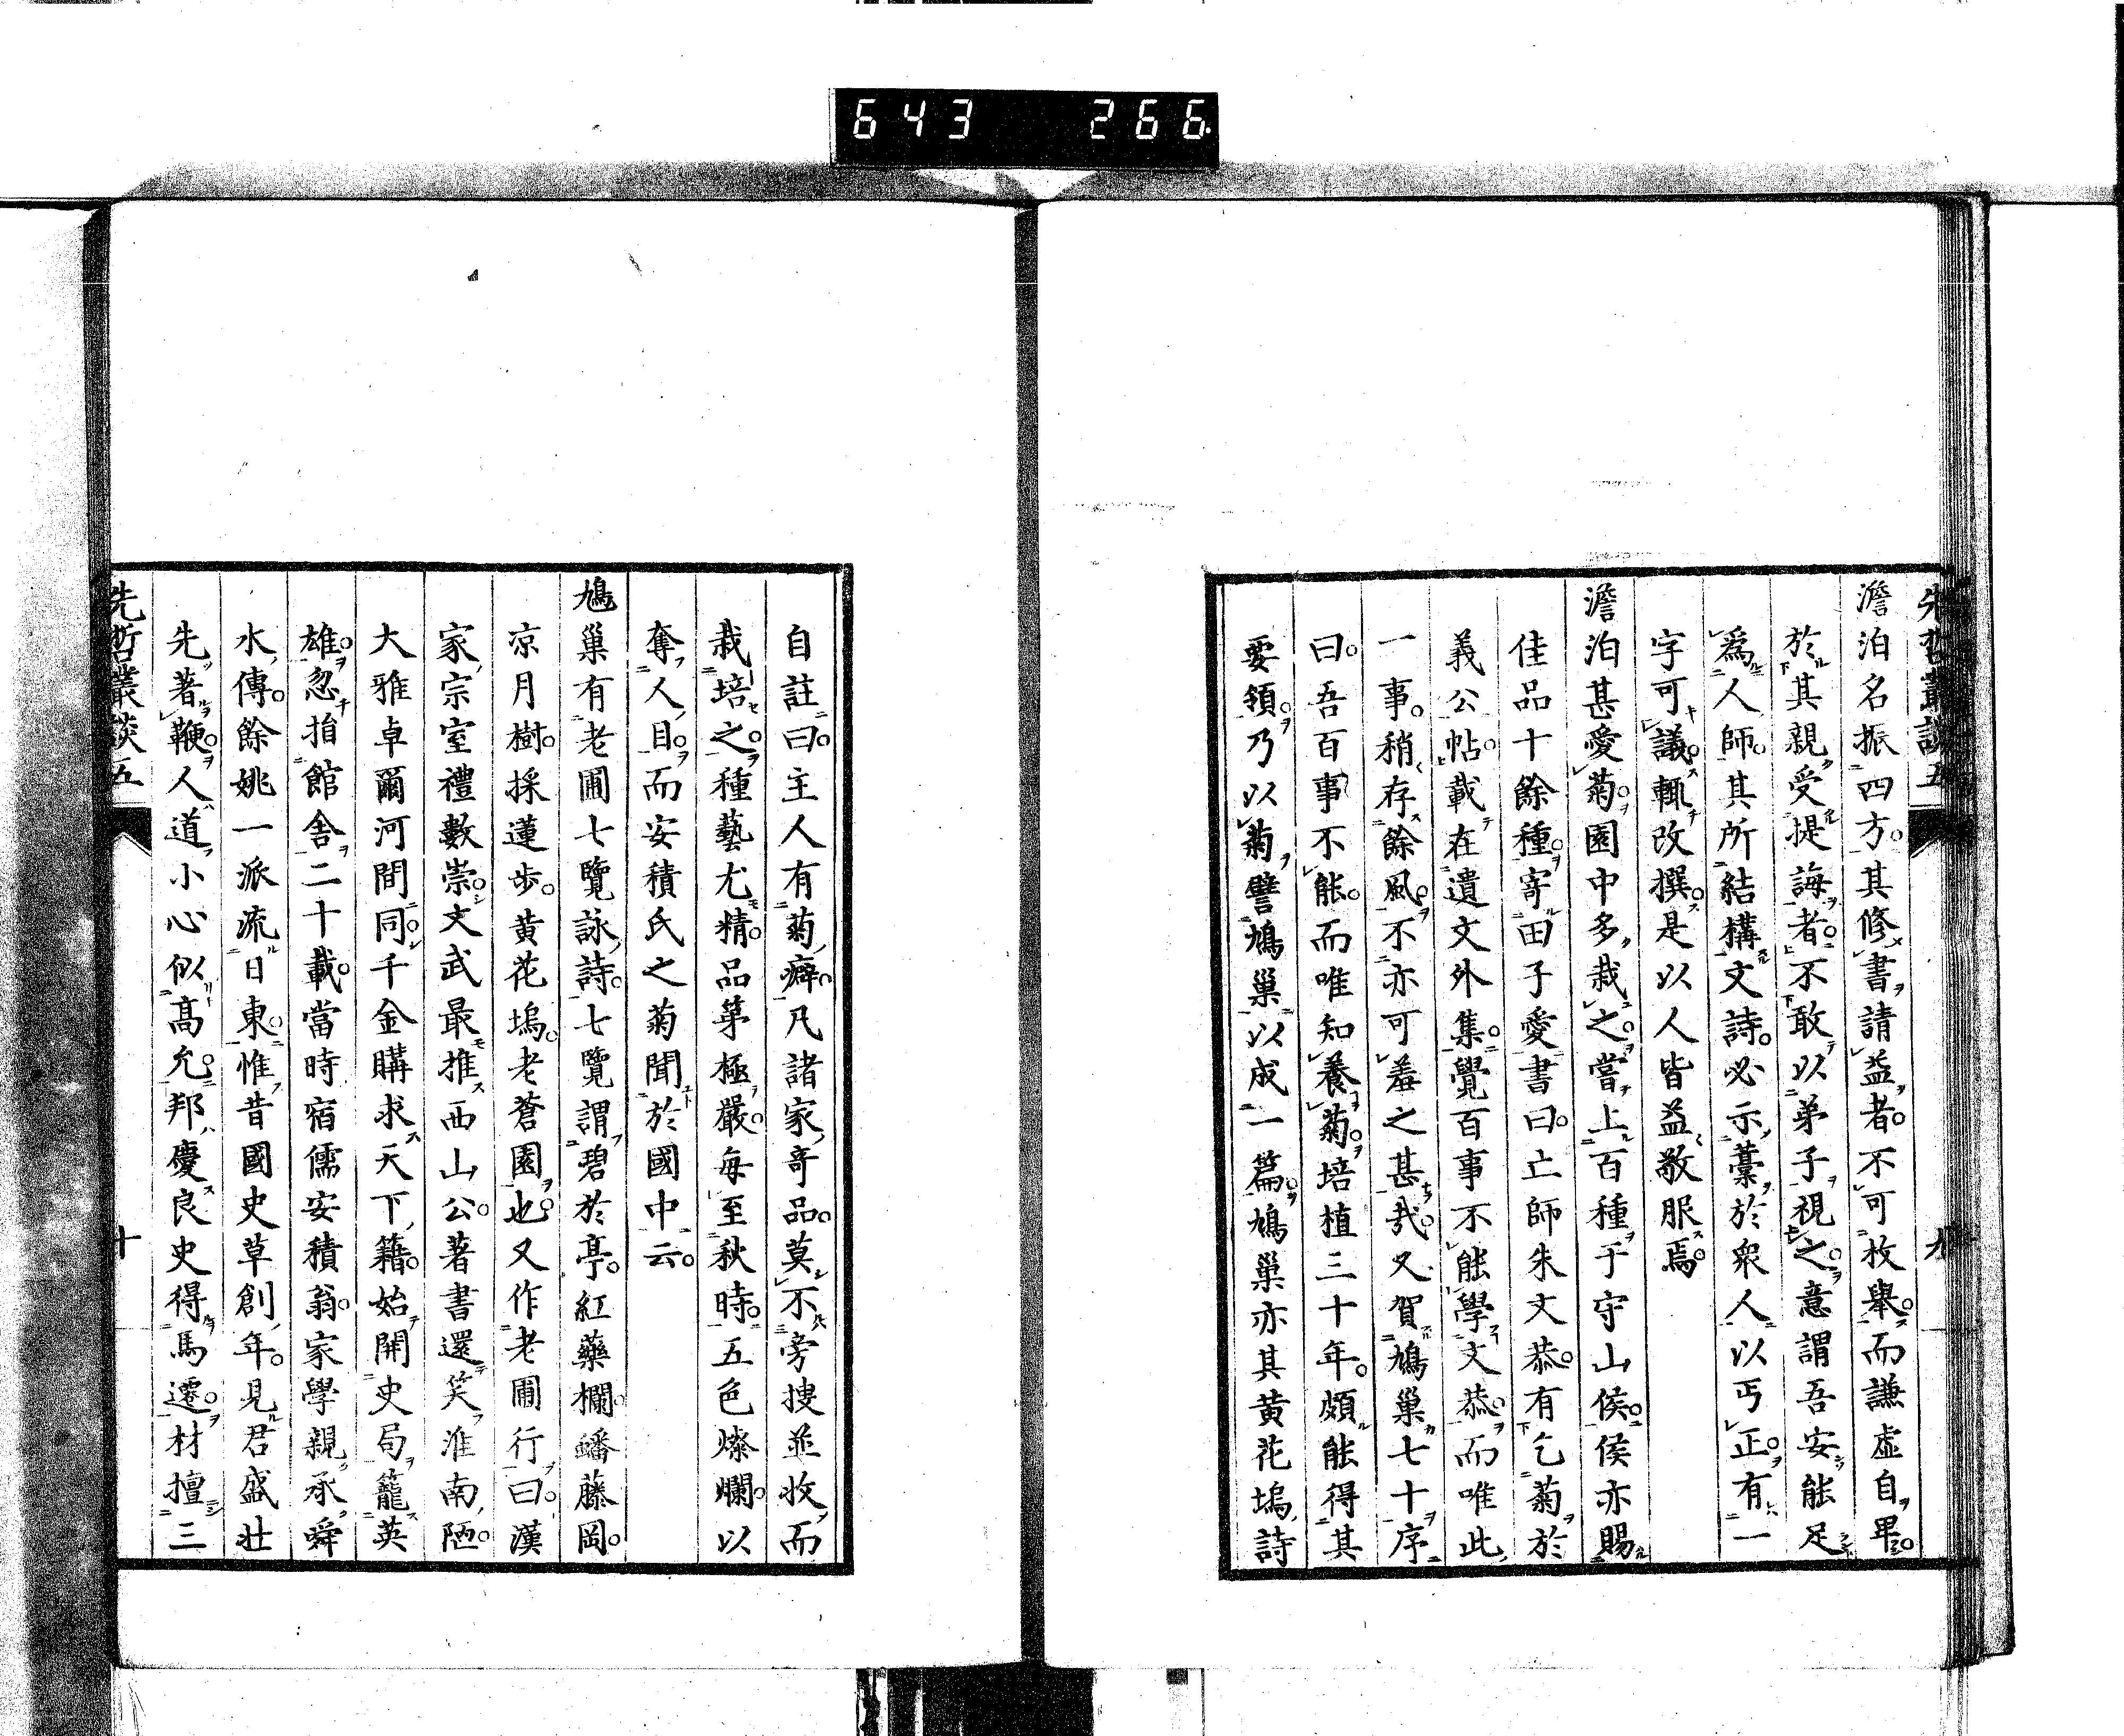 643 266
先哲叢談五 九
澹泊名振四方。其修書請益者。不可枚舉。而謙虛自卑。
於其親受提誨者。不敢以弟子視之。意謂吾安能足
爲人師。其所結構文詩。必示藁於衆人以丐正。有一
字可議。輒改撰。是以人皆益敬服焉。
澹泊甚愛菊。園中多栽之。嘗上百種于守山侯。侯亦賜
佳品十餘種。寄田子愛書曰。亡師朱文恭。有乞菊於
義公帖。載在遺文外集。覺百事不能學文恭。而唯此
一事。稍存餘風。不亦可羞之甚哉。又賀鳩巢七十序
曰。吾百事不能。而唯知養菊。培植三十年。頗能得其
要領。乃以菊譬鳩巢。以成一篇。鳩巢亦其黄花塢詩
自註曰。主人有菊癖。凡諸家奇品。莫不旁搜並收。而
栽培之。種藝尤精。品第極嚴。每至秋時。五色燦爛。以
奪人目。而安積氏之菊聞於國中云。
鳩巢有老圃七覽詠詩。七覽謂碧於亭。紅藥欄。蟠藤岡。
凉月樹。採蓮步。黄花塢。老蒼園也。又作老圃行曰。漢
家宗室禮數崇。文武最推西山公。著書還笑淮南陋。
大雅卓爾河間同。千金購求天下籍。始開史局籠英
雄。忽指館舍二十載。當時宿儒安積翁。家學親承舜
水傳。餘姚一派流日東。惟昔國史草創年。見君盛壯
先著鞭。人道小心似高允。邦慶良史得馬遷。材擅三
先哲叢談五 十